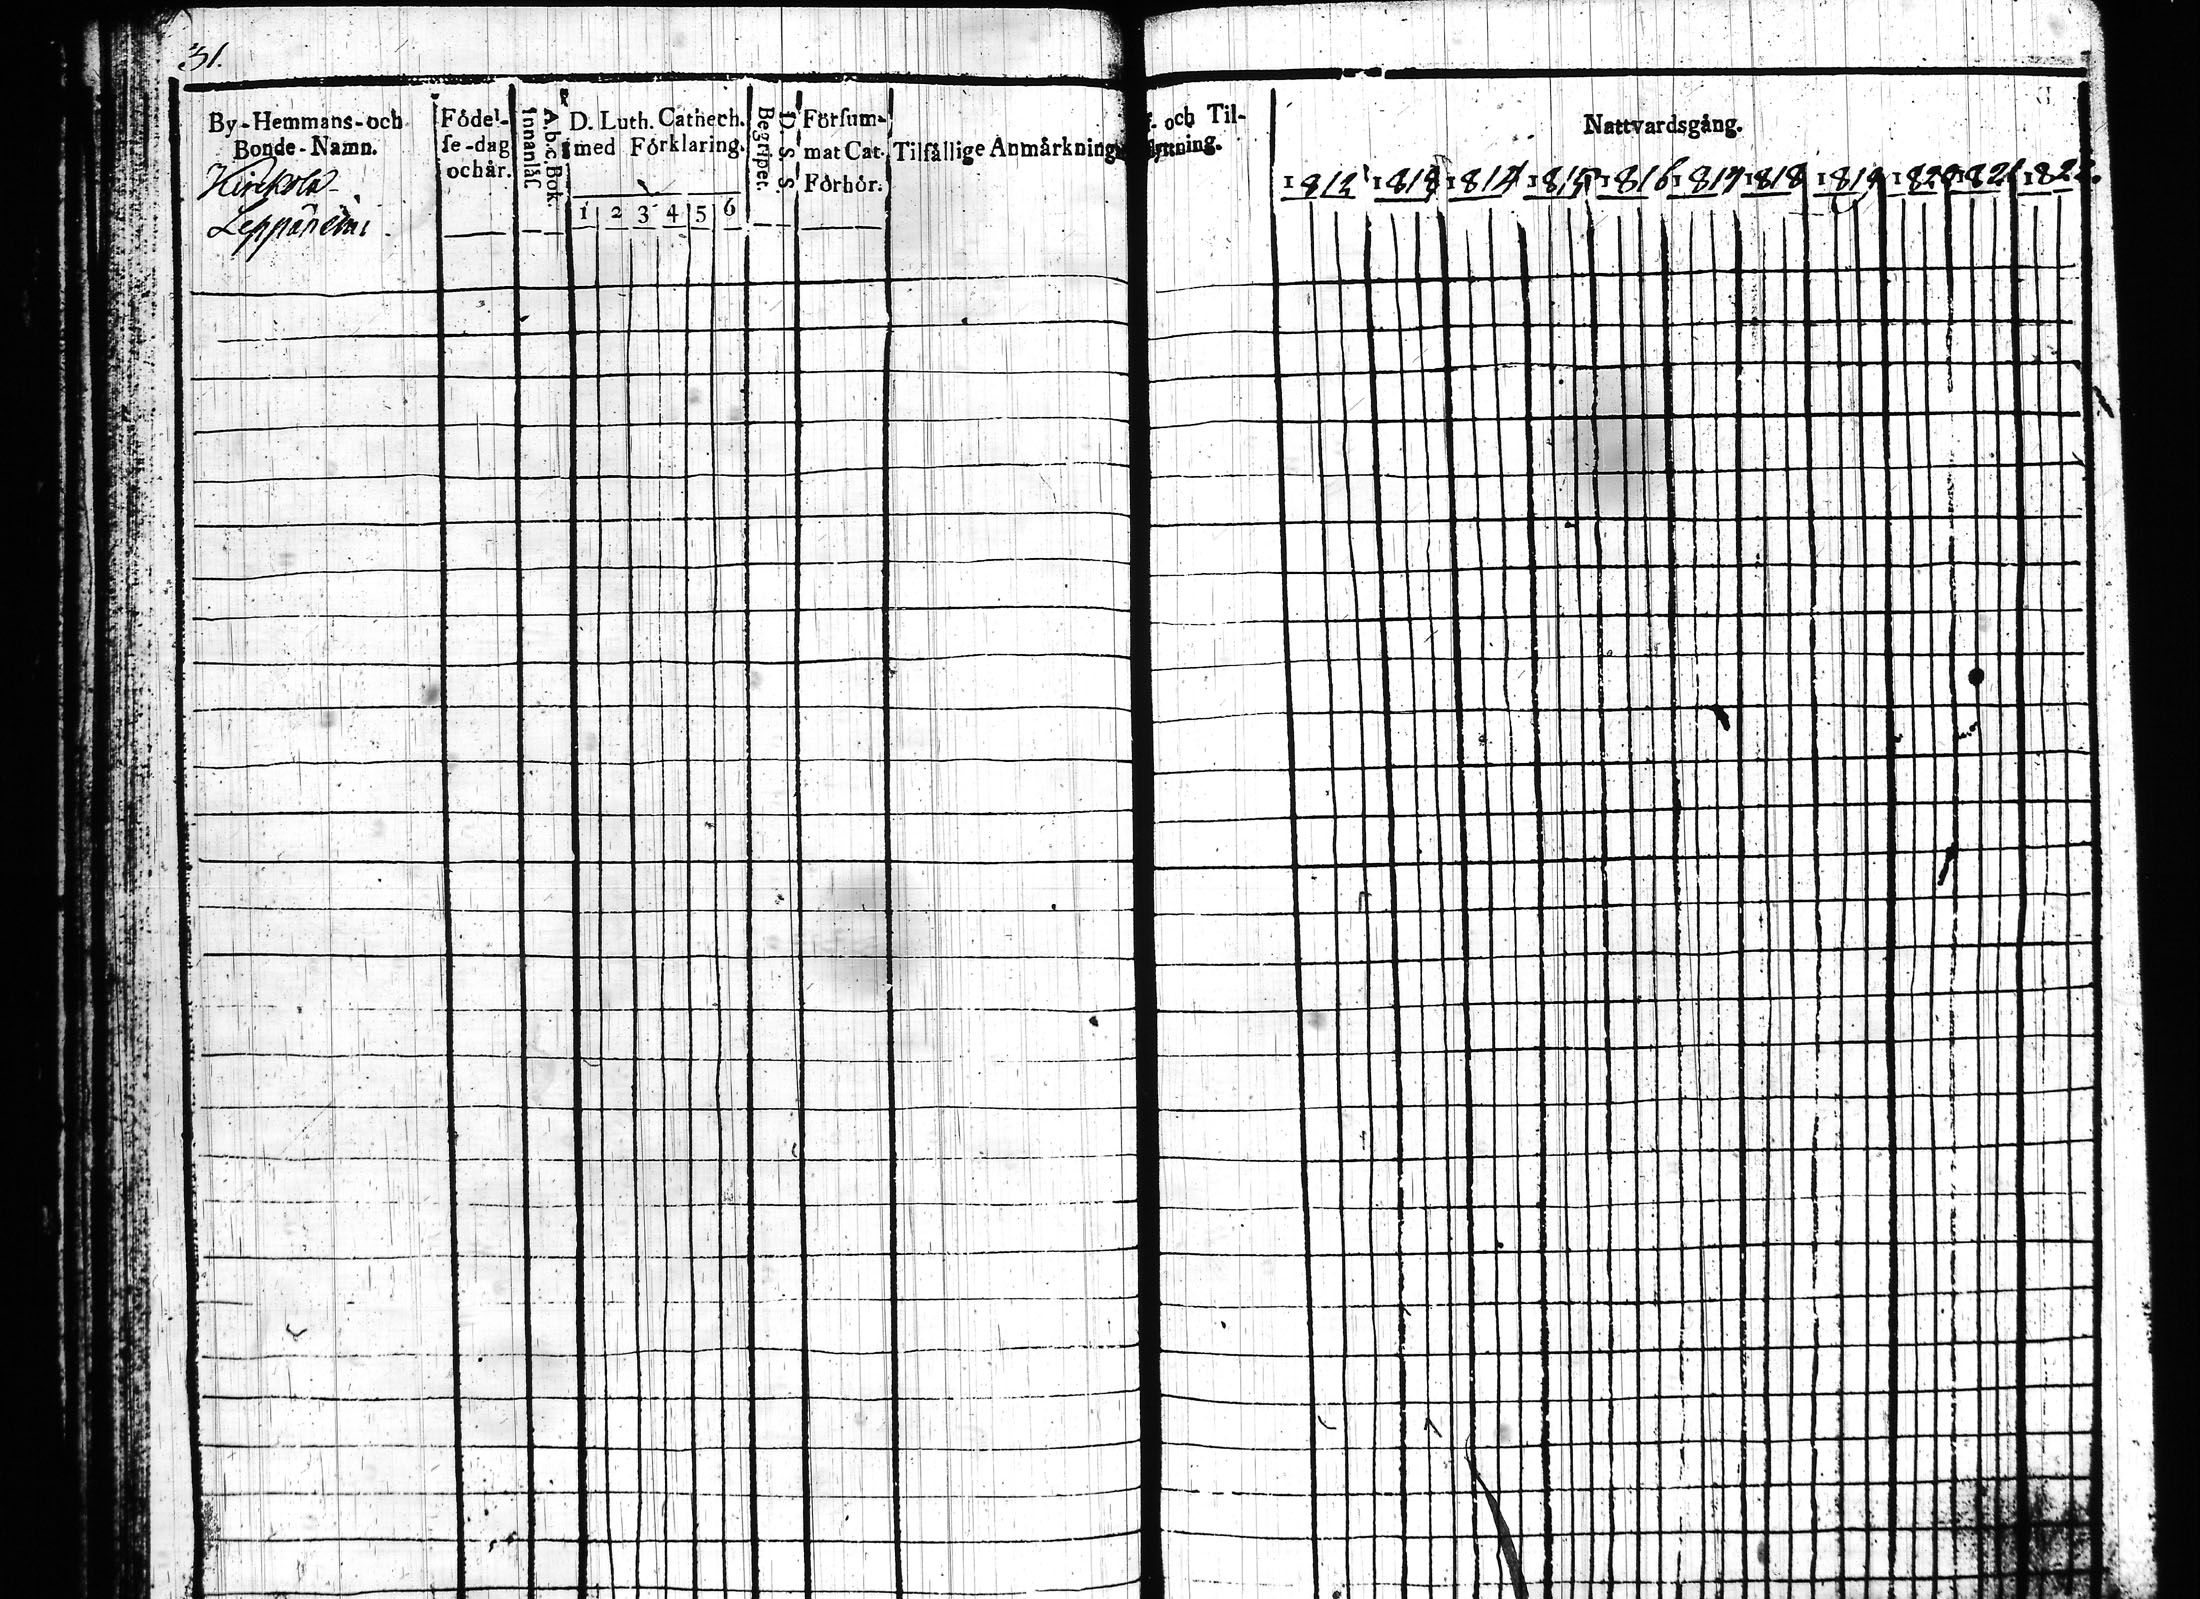 31.
By-Hemmans-och
Bonde-Namn.
Leppänemi
Födel-
se-dag
och år.
A. b. c. Bok
Innanläs
D. Luth. Cathech.
med Förklaring.
1 2 3 4 5 6
D. S. S. S.
Begriper.
Försum-
mat Cat.
Förhör.
Tilfällige Anmärkning
och Til-
Nattvardsgång.
1812 1813 1814 1815 1816 1817 1818 1819 1820 1821 1822.